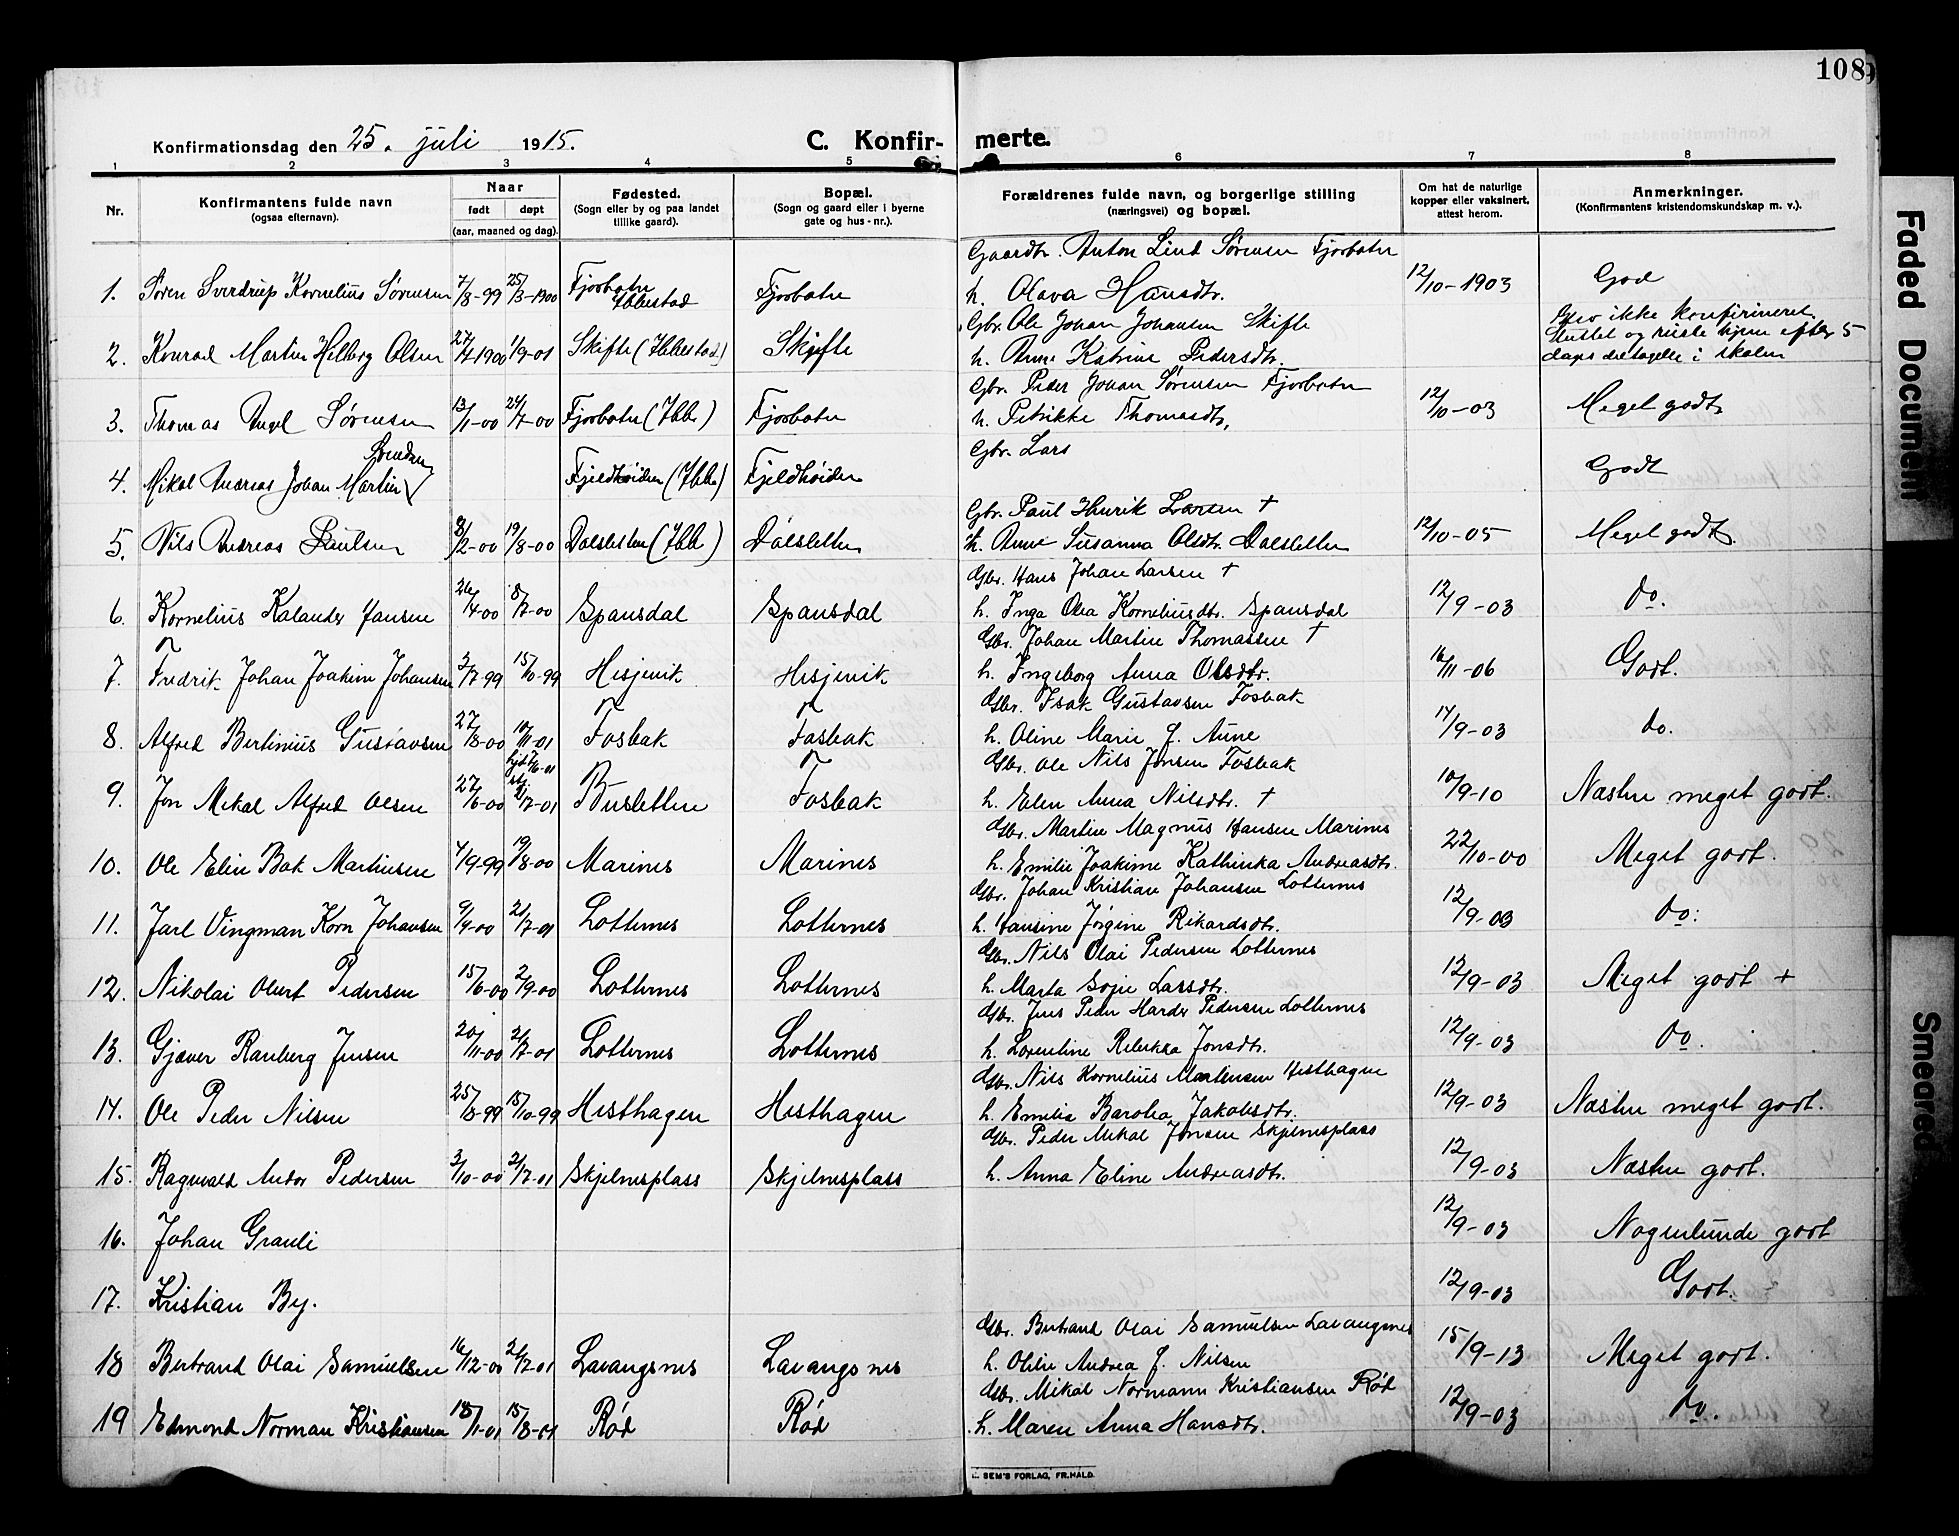 108
Konfirmationsdag den 25. juli 1915.
C. Konfir- merte.
1 2 3 4 5 6 7 8
Nr.
Konfirmantens fulde navn
(ogsaa efternavn).
Naar
født døpt
(aar, maaned og dag).
Fødested.
(Sogn eller by og paa landet
tillike gaard).
Bopæl.
(Sogn og gaard eller i byerne
gate og hus-nr.).
Forældrenes fulde navn, og borgerlige stilling
(næringsvei) og bopæl.
Om hat de naturlige
kopper eller vaksinert,
attest herom.
Anmerkninger.
(Konfirmantens kristendomskundskap m. v.).
Gaardbr. Anton Lind Sørensen Fjorbotn
1. Søren Sverdrup Kornelius Sørensen 7/8-99 25/3-1900 Fjorbotn Ibbestad Fjorbotn h. Olava Hansdtr. 12/10-1903 God
Gbr. Ole Johan Johansen Skifte
2. Konrad Martin Helberg Olsen 27/4-1900 1/9-01 Skifte (Ibbestad) Skifte h. Anne Katrine Pedersdtr. Blev ikke konfirmeret.
Sluttet og reiste hjem efter 5
dages deltagelse i skolen
Gbr. Peder Johan Sørensen Fjorbotn
3. Thomas Angel Sørensen 13/1-00 24/7-00 Fjorbotn (Ibb.) Fjorbotn h. Petrikke Thomasdtr. 12/10-03 Meget godt
Gbr. Lars
4. Mikal Andreas Johan Martin Svendsen Fjeldhøiden (Ibb.) Fjeldhøiden Godt
Gbr. Paul Henrik Larsen †
5. Nils Andreas Paulsen 8/2-00 19/8-00 Dalsletten (Ibb) Dalsletten h. Anne Susanna Olsdtr. Dalsletten 12/10-05 Meget godt.
Gbr. Hans Johan Larsen †
6. Kornelius Kalander Hansen 26/4-00 8/7-00 Spansdal Spansdal h. Inga Olea Korneliusdtr. Spansdal 12/9-03 do.
Gbr. Johan Martin Thomassen †
7. Fredrik Johan Joakim Johansen 3/7-99 15/10-99 Hesjevik Hesjevik h. Ingeborg Anna Olsdtr. 16/11-06 Godt.
Gbr. Isak Gustavsen Fosbak
8. Alfred Bertinius Gustavsen 27/8-00 10/11-01 Fosbak Fosbak h. Oline Marie f. Aune 14/9-03 do.
Gbr. Ole Nils Jensen Fosbak
9. Jon Mikal Alfred Olsen 27/6-00 21/7-01 Busletten Fosbak h. Elen Anna Nilsdtr. † 10/9-10 Næsten meget godt.
Gbr. Martin Magnus Hansen Marines
10. Ole Elin Bak Martinsen 4/9-99 19/8-00 Marines Marines h. Emilie Joakime Kathinka Andreasdtr. 22/10-00 Meget godt.
Gbr. Johan Kristian Johansen Lotternes
11. Jarl Vingman Korn Johansen 9/9-00 21/7-01 Lotternes Lotternes h. Hansine Jørgine Rikardsdtr. 12/9-03 do.
Gbr. Nils Olai Pedersen Lotternes
12. Nikolai Olurt Pedersen 15/6-00 2/9-00 Lotternes Lotternes h. Marta Sofie Larsdtr. 12/9-03 Meget godt +
Gbr. Jens Peder Harder Pedersen Lotternes
13. Gjæver Ranberg Jensen 20/11-00 21/7-01 Lotternes Lotternes h. Lorentine Rebekka Jonsdtr. 12/9-03 do.
Gbr. Nils Kornelius Martensen Hesthagen
14. Ole Peder Nilsen 25/8-99 15/10-99 Hesthagen Hesthagen h. Emilia Barolia Jakobsdtr. 12/9-03 Næsten meget godt.
Gbr. Peder Mikal Jonsen Skjelnesplass
15. Ragnvald Andor Pedersen 3/10-00 21/7-01 Skjelnesplass Skjelnesplass h. Anna Eline Andreasdtr. 12/9-03 Næsten godt.
16. Johan Granli 12/9-03 Nogenlunde godt
17. Kristian By. 12/9-03 Godt.
Gbr. Bertrand Olai Samuelsen Lavangsnes
18 Bertrand Olai Samuelsen 16/12-00 21/7-01 Lavangsnes Lavangsnes h. Oline Andrea f. Nilsen 15/9-13 Meget godt.
Gbr. Mikal Normann Kristiansen Rød
19 Edmond Norman Kristiansen 18/1-01 15/8-01 Rød Rød h. Maren Anna Hansdtr. 12/9-03 do.
SEM'S FORLAG, FR.HALD.
Faded Document
Smeared